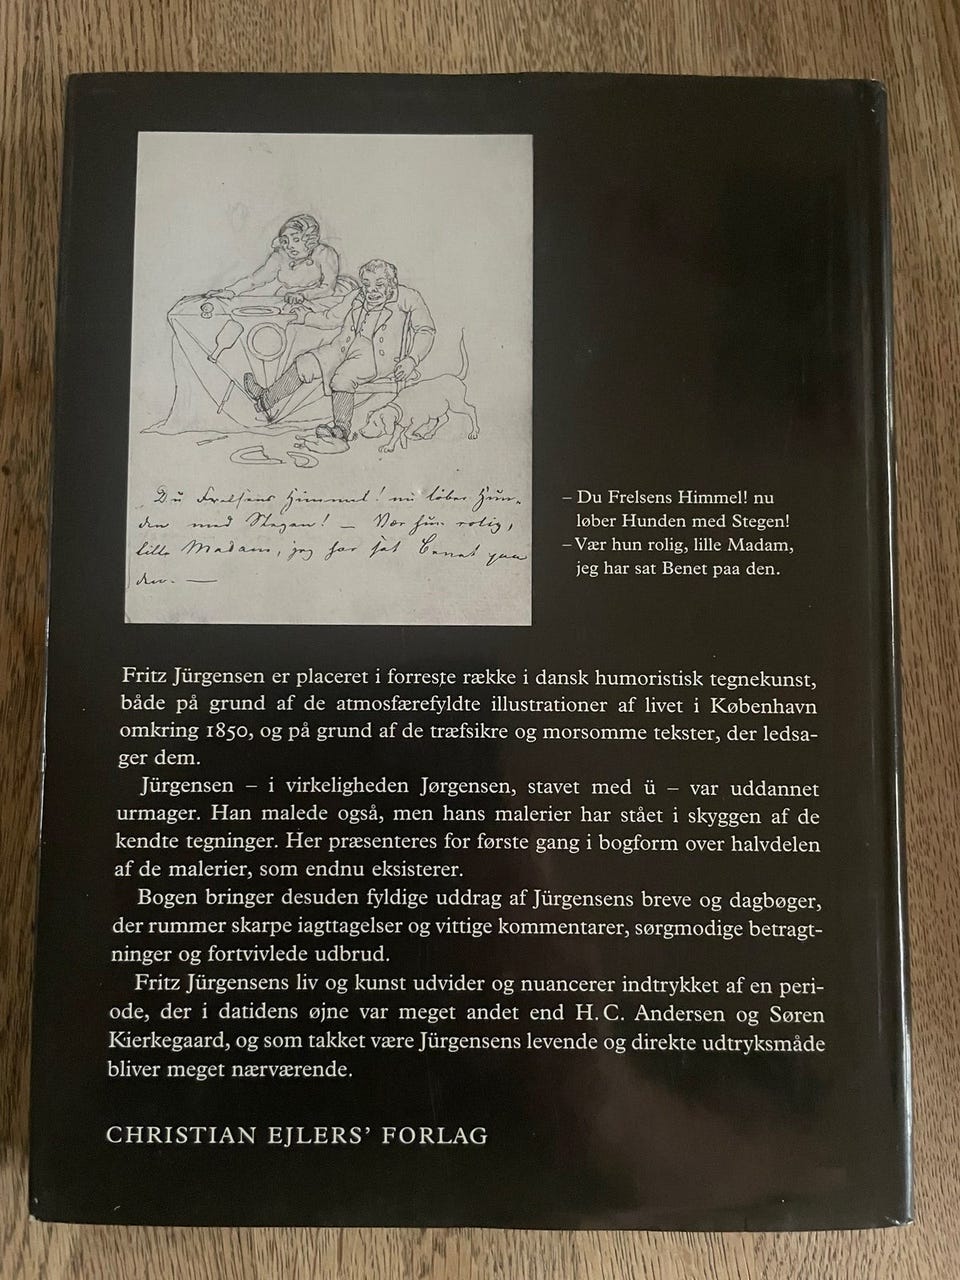 Du Frelsens Himmel! nu løber Hun-
den med Stegen! — Vær hun rolig,
lille Madam, jeg har sat Benet paa
den. —
– Du Frelsens Himmel! nu
løber Hunden med Stegen!
– Vær hun rolig, lille Madam,
jeg har sat Benet paa den.
Fritz Jürgensen er placeret i forreste række i dansk humoristisk tegnekunst,
både på grund af de atmosfærefyldte illustrationer af livet i København
omkring 1850, og på grund af de træfsikre og morsomme tekster, der ledsa-
ger dem.
Jürgensen – i virkeligheden Jørgensen, stavet med ü – var uddannet
urmager. Han malede også, men hans malerier har stået i skyggen af de
kendte tegninger. Her præsenteres for første gang i bogform over halvdelen
af de malerier, som endnu eksisterer.
Bogen bringer desuden fyldige uddrag af Jürgensens breve og dagbøger,
der rummer skarpe iagttagelser og vittige kommentarer, sørgmodige betragt-
ninger og fortvivlede udbrud.
Fritz Jürgensens liv og kunst udvider og nuancerer indtrykket af en peri-
ode, der i datidens øjne var meget andet end H. C. Andersen og Søren
Kierkegaard, og som takket være Jürgensens levende og direkte udtryksmåde
bliver meget nærværende.
CHRISTIAN EJLERS' FORLAG